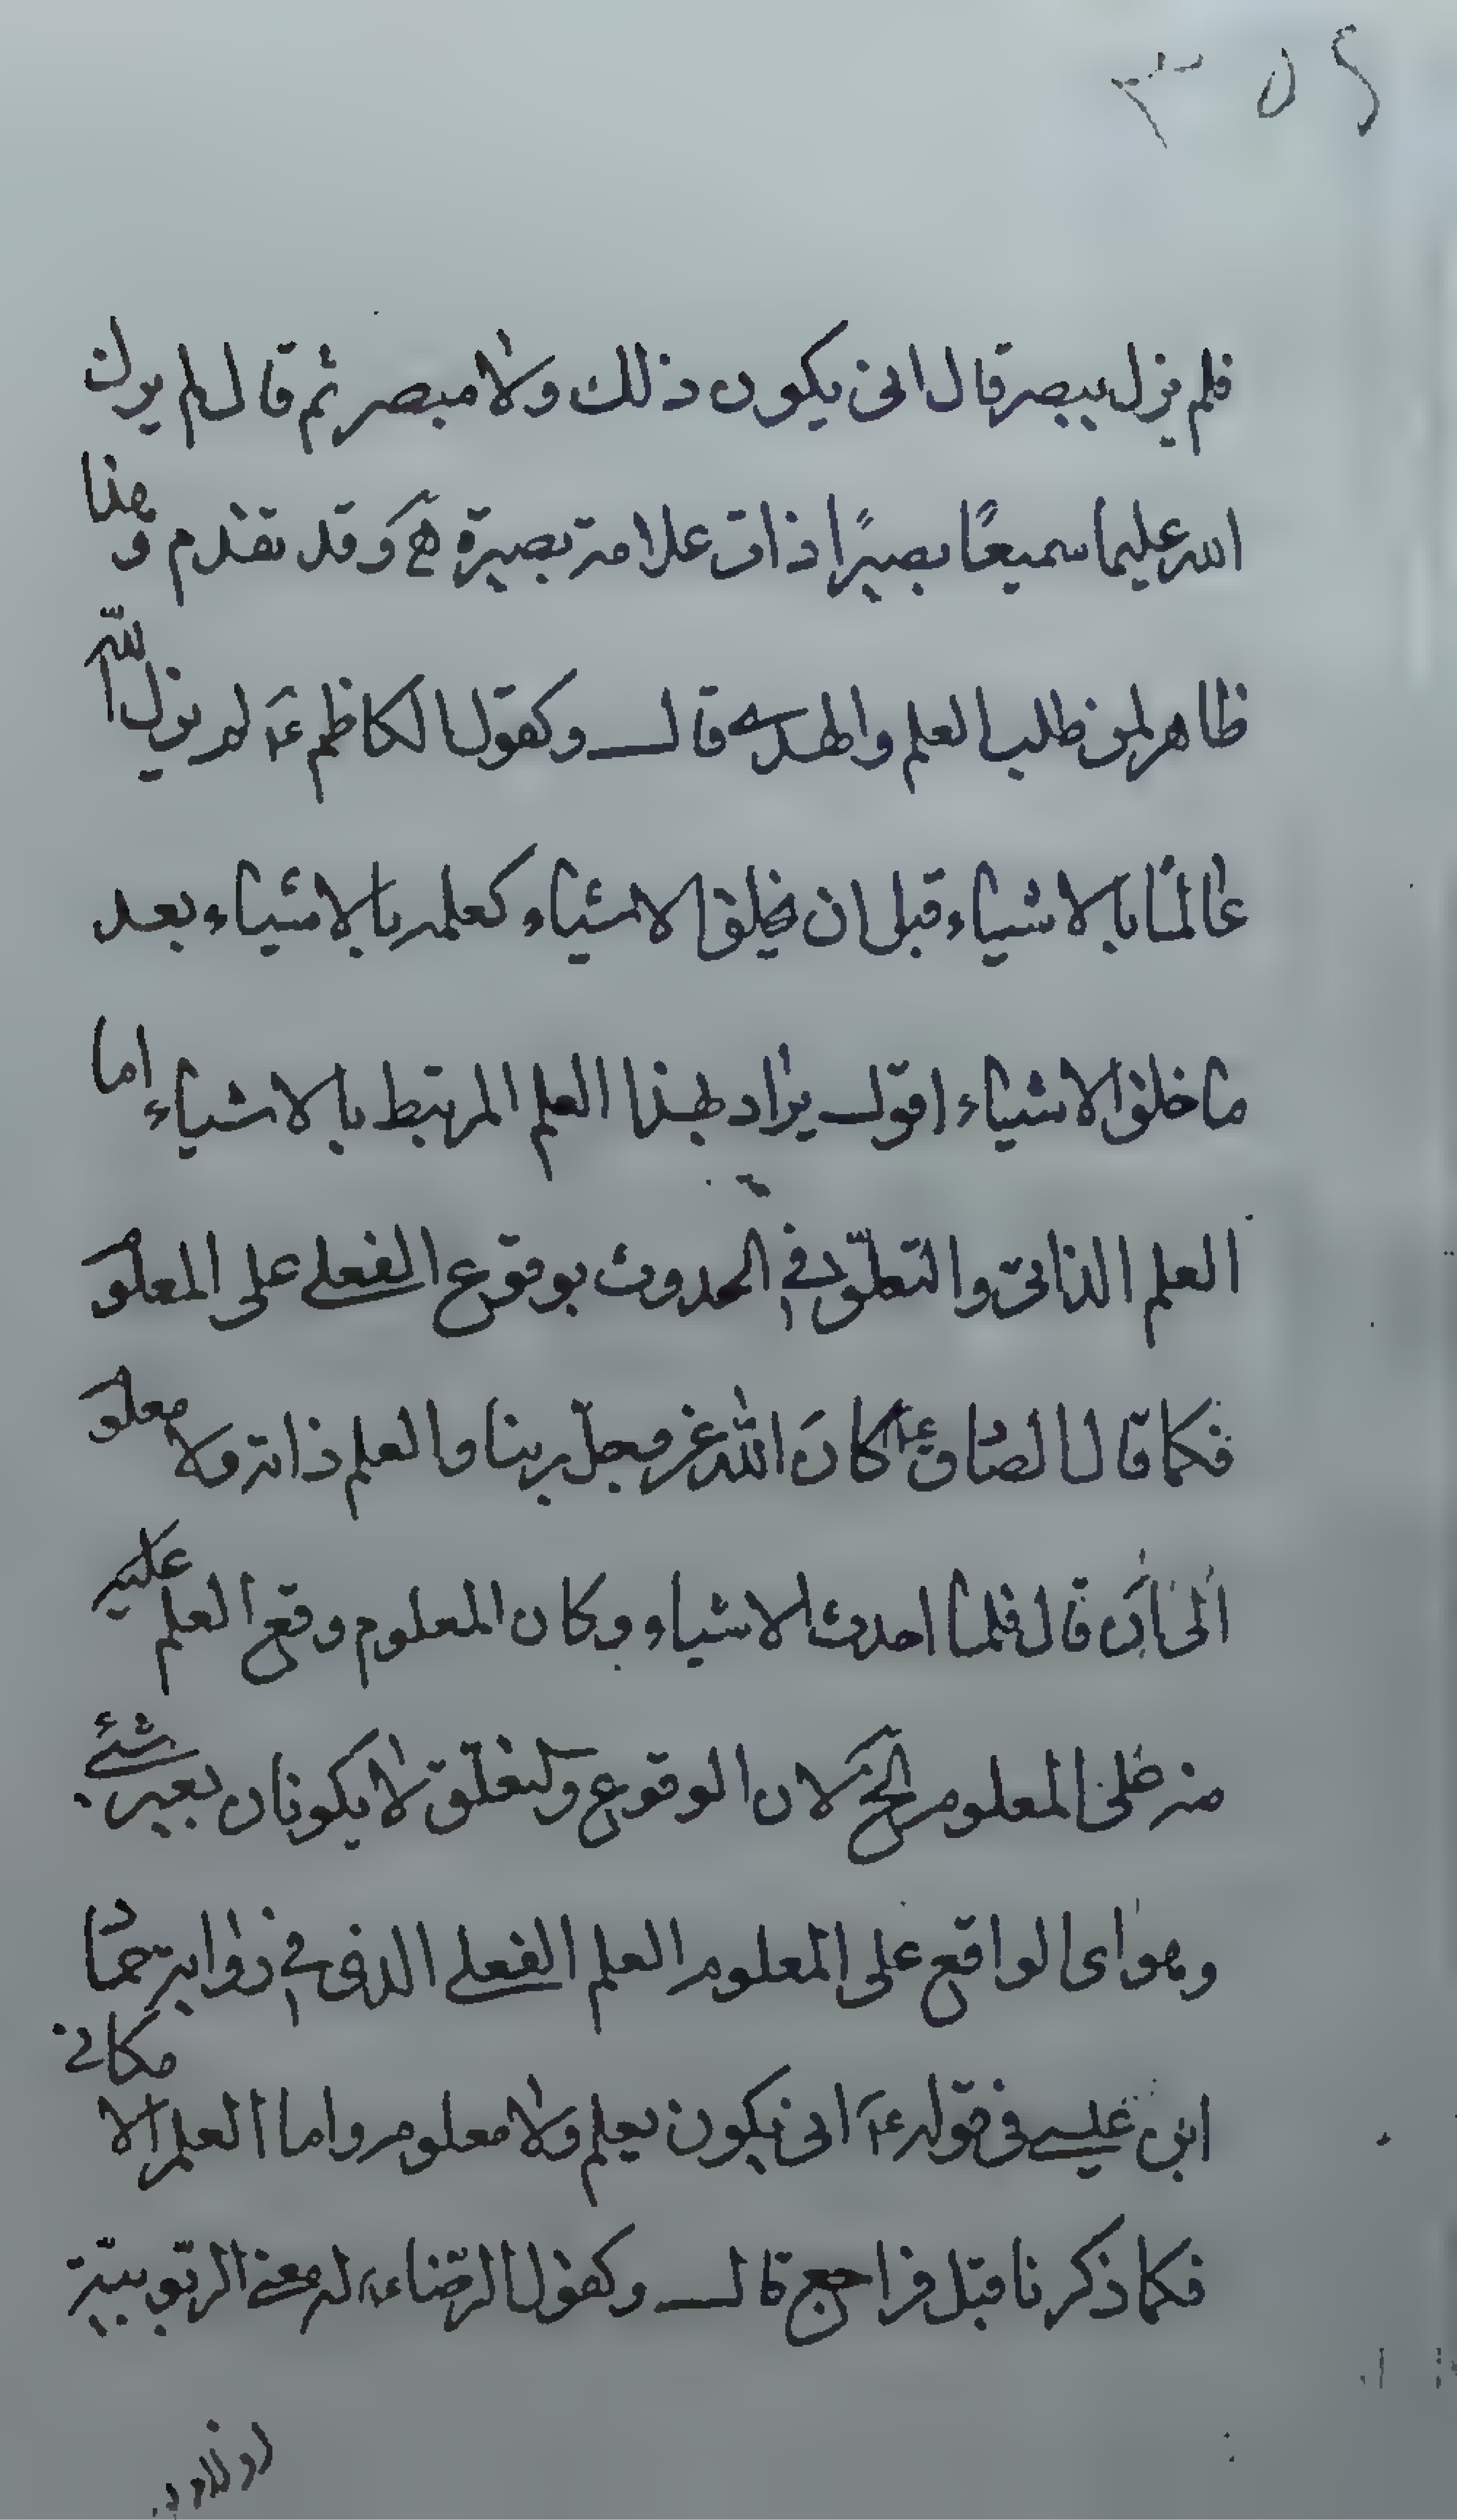 ٣٥٤
فلم يزل يبصر قال انى يكون ذلك ولا مبصر ثم قال لم يزل
الله عليما سميعًا بصيرًا ذات علامة بصيرة هَ وقد تقدم وهذا
ظاهر لمن طلب العلم والهدى قال وكقول الكاظم عَ لم يزل الله
عالمًا بالاشياء قبل ان يخلق الاشياء كعلمه بالاشياء بعد
ما خلق الاشياء اقول يراد بهذا العلم المرتبط بالاشياء اما
العلم الذاتى والتعلّق فى الحدوث بوقوع الفعلى على المعلوم
فكما قال الصادق عَ كان الله عز وجل ربنا والعلم ذاته ولا معلوم
الى ان قال فلما احدث الاشياء وكان المعلوم وقع العلم عليه
منه على المعلوم الخ لان الوقوع والتعلّق لا يكونان بغير شئ
وهو اى الواقع على المعلوم العلم الفعلى الذى فى رواية حماد
ابن عيسى فى قوله عَ انى يكون يعلم ولا معلوم واما العلم الامكانى
فكما ذكرنا قبل فراجع قال وكقول الرضا عَ له معنى الربوبيّة